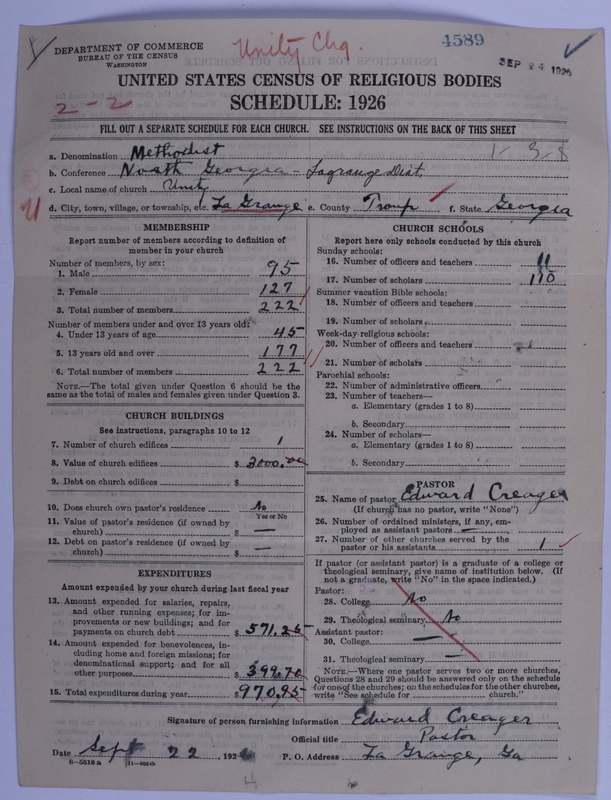 DEPARTMENT OF COMMERCE
BUREAU OF THE CENSUS
WASHINGTON
Unity Chg.
4589
SEP 24 1926
UNITED STATES CENSUS OF RELIGIOUS BODIES
2-2
SCHEDULE: 1926
FILL OUT A SEPARATE SCHEDULE FOR EACH CHURCH. SEE INSTRUCTIONS ON THE BACK OF THIS SHEET
a. Denomination Methodist 1-3-8
b. Conference North Georgia - Lagrange Dist.
c. Local name of church Unity
d. City, town, village, or township, etc. La Grange e. County Troup f. State Georgia
MEMBERSHIP
Report number of members according to definition of
member in your church
Number of members, by sex:
1. Male 95
2. Female 127
3. Total number of members 222
Number of members under and over 13 years old:
4. Under 13 years of age 45
5. 13 years old and over 177
6. Total number of members 222
NOTE.—The total given under Question 6 should be
same as the total of males and females given under Question 3.
CHURCH BUILDINGS
See instructions, paragraphs 10 to 12
7. Number of church edifices 1
8. Value of church edifices $ 3000.00
9. Debt on church edifices $
10. Does church own pastor's residence No
Yes or No
11. Value of pastor's residence (if owned by
church) $ —
12. Debt on pastor's residence (if owned by
church) $ —
EXPENDITURES
Amount expended by your church during last fiscal year
13. Amount expended for salaries, repairs,
and other running expenses; for im-
provements or new buildings; and for
payments on church debt $ 571.25
14. Amount expended for benevolences, in-
cluding home and foreign missions; for
denominational support; and for all
other purposes $ 399.70
15. Total expenditures during year $ 970.95
CHURCH SCHOOLS
Report here only schools conducted by this church
Sunday schools:
16. Number of officers and teachers 11
17. Number of scholars 110
Summer vacation Bible schools:
18. Number of officers and teachers
19. Number of scholars
Week-day religious schools:
20. Number of officers and teachers
21. Number of scholars
Parochial schools:
22. Number of administrative officers
23. Number of teachers—
a. Elementary (grades 1 to 8)
b. Secondary
24. Number of scholars—
a. Elementary (grades 1 to 8)
b. Secondary
PASTOR
25. Name of pastor Edward Creager
(If church has no pastor, write "None")
26. Number of ordained ministers, if any, em-
ployed as assistant pastors —
27. Number of other churches served by the
pastor or his assistants 1
If pastor (or assistant pastor) is a graduate of a college or
theological seminary, give name of institution below. (If
not a graduate, write "No" in the space indicated.)
Pastor:
28. College No
29. Theological seminary No
Assistant pastor:
30. College —
31. Theological seminary —
NOTE.—Where one pastor serves two or more churches,
Questions 28 and 29 should be answered only on the schedule
for one of the churches; on the schedules for the other churches,
write "See schedule for church."
Signature of person furnishing information Edward Creager
Official title Pastor
Date Sept 22, 1926 P. O. Address La Grange, Ga
8-5518 a